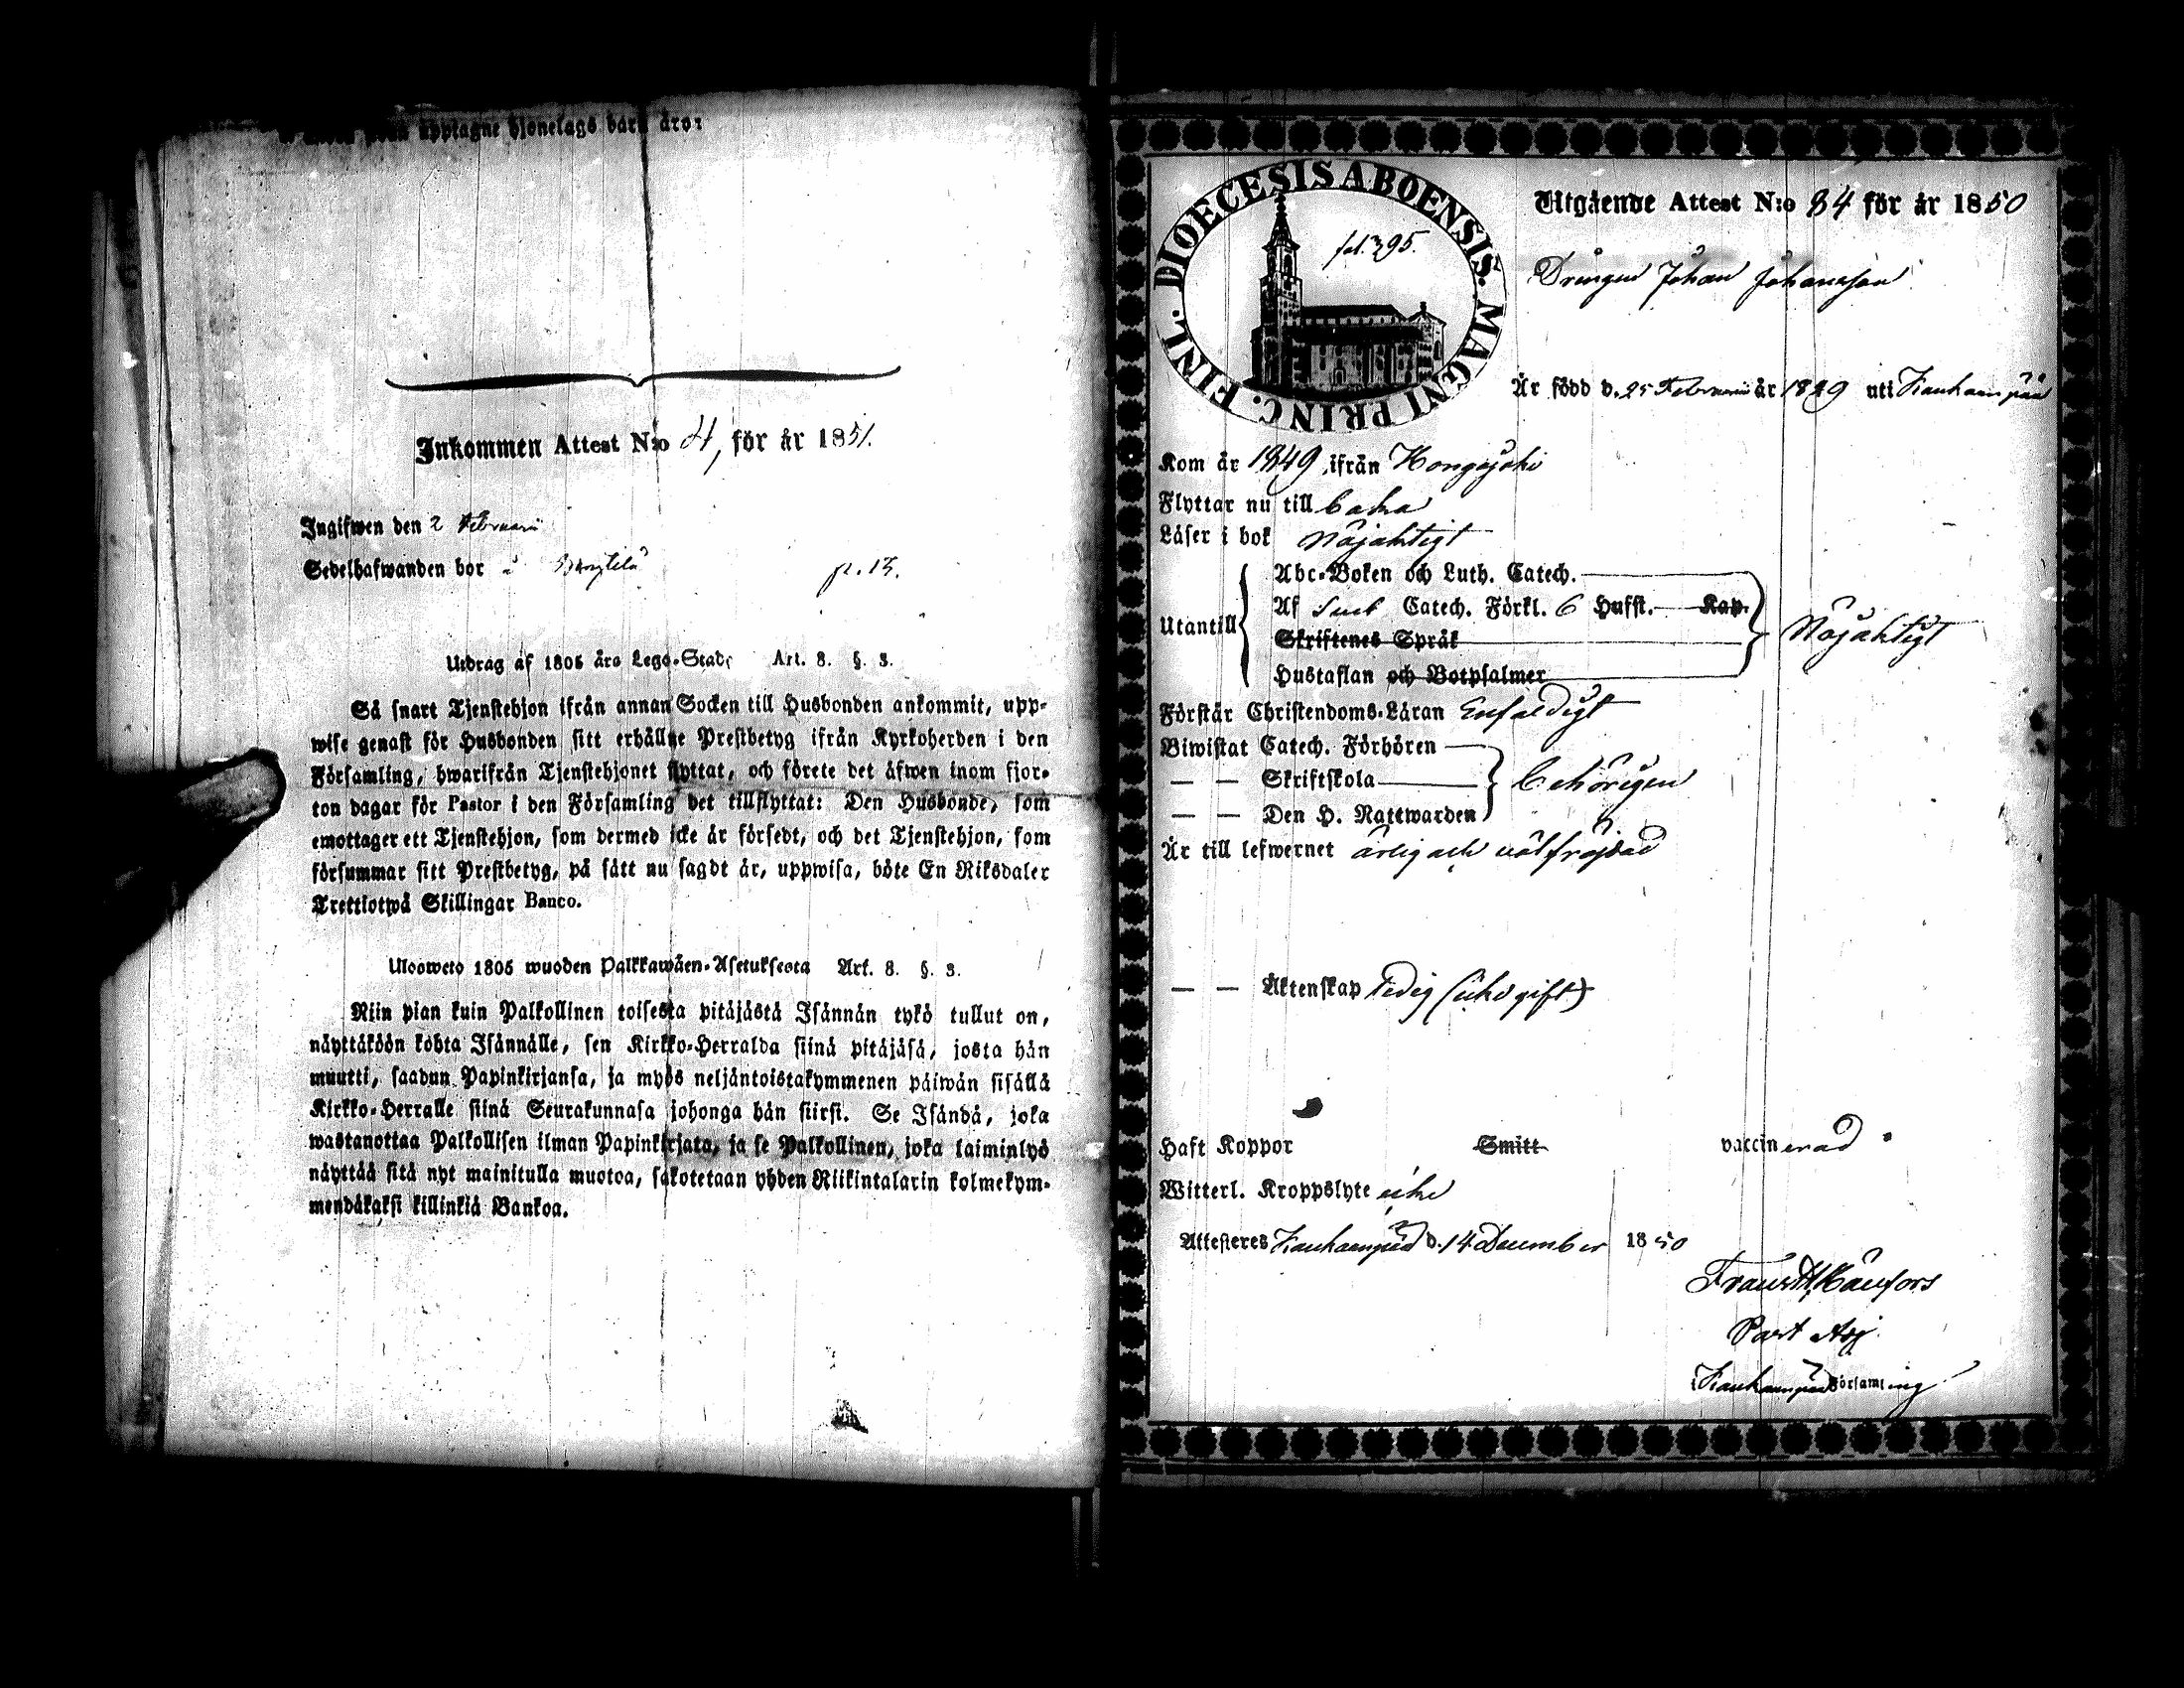 upptagne hjonelags barn äro:
Inkommen Attest N:o 4, för år 1851.
Ingifwen den 2 Februari
Sedelhafwanden bor p. 13.
Utdrag af 1805 års Lego-Stadg Art. 8. §. 3.
Så snart Tjenstehjon ifrån annan Socken till Husbonden ankommit, upp-
wise genast för Husbonden sitt erhållne Prestbetyg ifrån Kyrkoherden i den
Församling, hwarifrån Tjenstehjonet flyttat, och förete det äfwen inom fjor-
ton dagar för Pastor i den Församling det tillflyttat: Den Husbonde, som
emottager ett Tjenstehjon, som dermed icke är försedt, och det Tjenstehjon, som
försummar sitt Prestbetyg, på sätt nu sagdt är, uppwisa, böte En Riksdaler
Trettiotwå Skillingar Banco.
Uloswcto 1805 wuoden Palkkawäen-Asetuksesta Art. 8. §. 3.
Niin pian kuin Palkollinen toisesta pitäjästä Isännän tykö tullut on,
näyttäköön kohta Isännälle, sen Kirkko-Herralda siinä pitäjäsä, josta hän
muutti, saadun Papinkirjansa, ja myös neljäntoistakymmenen päiwän sisällä
Kirkko-Herralle siinä Seurakunnasa johonga hän siirsi. Se Isändä, joka
wastanottaa Palkollisen ilman Papinkirjata, ja se Palkollinen, joka laiminlyö
näyttää sitä nyt mainitulla muotoa, sakotetaan yhden Riikintalarin kolmekym-
mendäkaksi killinkiä Bankoa.
DIOECESIS ABOENSIS. MAGNI PRINC. FINL.
fol. 395.
Utgående Attest N:o 84 för år 1850
Drängen Johan Johansson
Är född d. 25 Februari år 1829 uti Kauhampää
Kom år 1849 ifrån Hongojoki
Flyttar nu till baka
Läser i bok Nöjaktigt
Utantill
Abc-Boken och Luth. Catech.
Af Sveb Catech. Förkl. 6 Hufst. Kap.
Skriftenes Språk
Hustaflan och Botpsalmer
Nöjaktigt
Förstår Christendoms-Läran Enfaldigt
Biwistat Catech. Förhören
— — Skriftskola
— — Den H. Nattwarden
behörigen
Är till lefwernet ärlig och välfräjdad
— — Äktenskap ledig (icke gift)
Haft Koppor Smitt vaccinerad
Witterl. Kroppslyte icke
Attesteres Kauhampää d. 14 December 1850
Frans H. Bäufors
Past Adj.
Kauhampää Församling